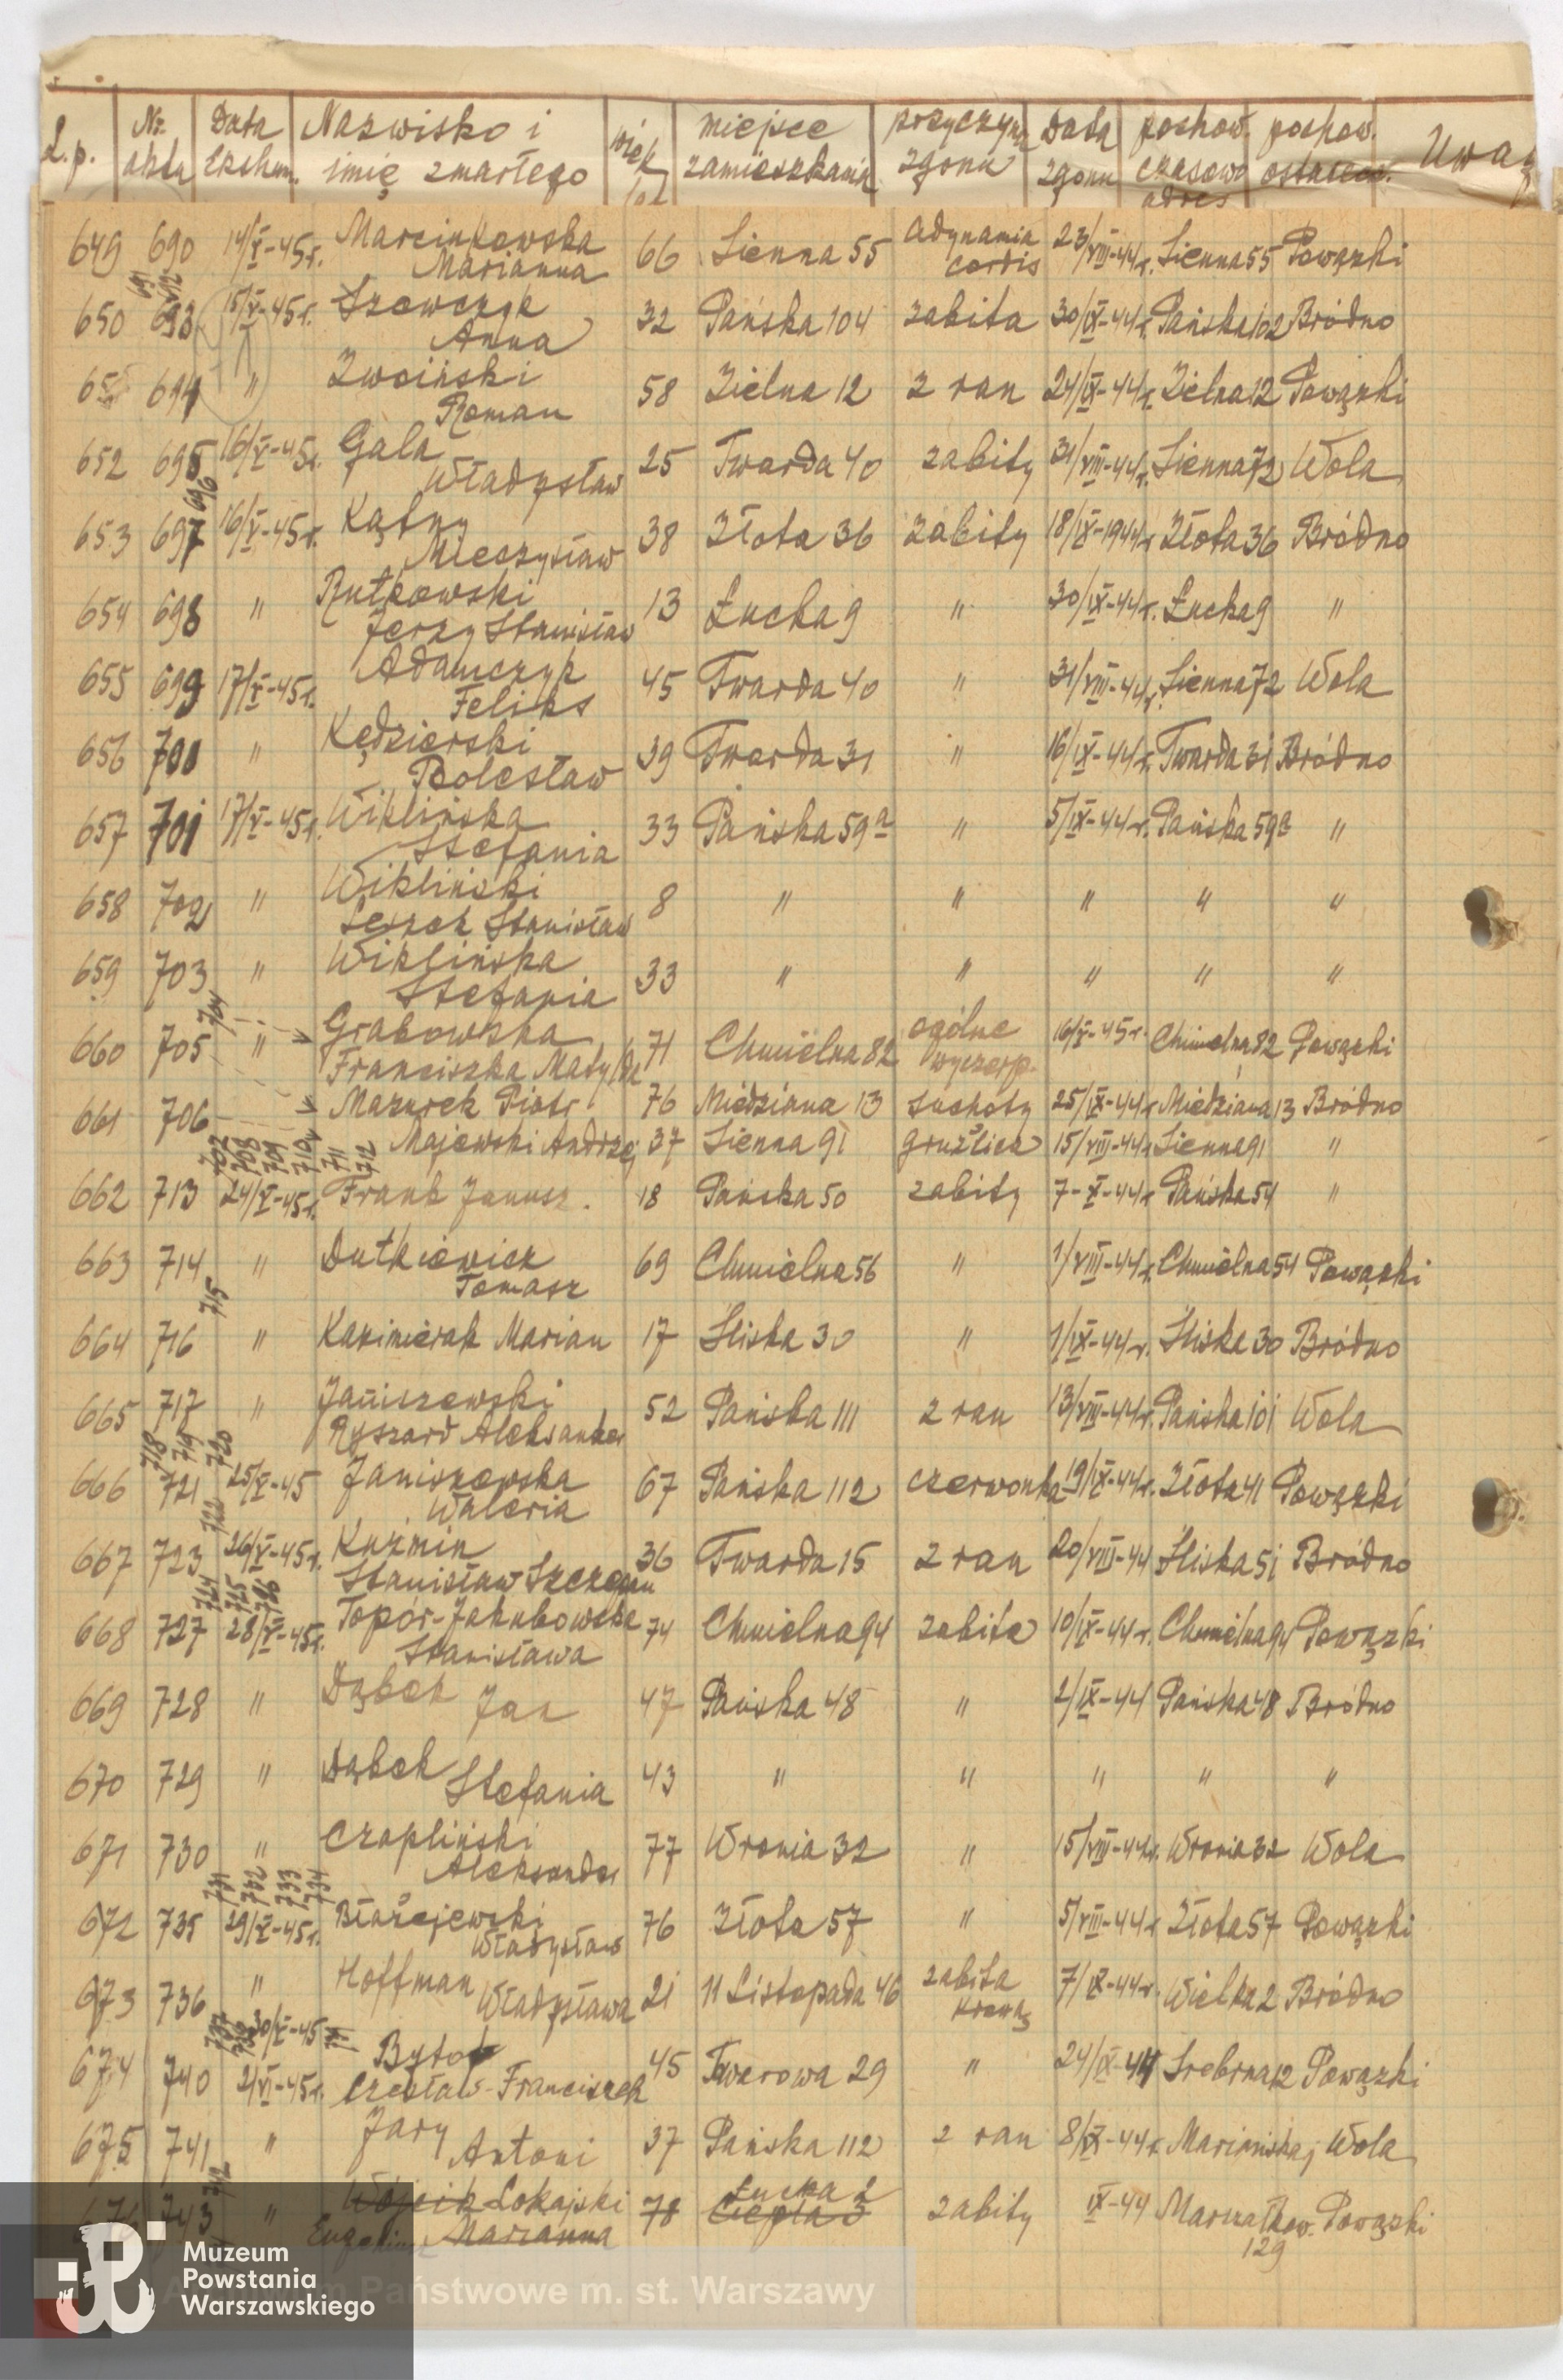 L.p. Nr. aktu Data Ekshum. Nazwisko i imię zmarłego wiek miejsce zamieszkania przyczyna zgonu Data zgonu pochow. czasowo adres pochow. ostatecz.
649 690 14/V-45r. Marcinkowska Marianna 66 Sienna 55 adynamia cordis 23/VIII-44r. Sienna 55 Powązki
691 692
650 693 15/V-45r. Szewczyk Anna 32 Pańska 104 zabita 30/IX-44r. Pańska 102 Bródno
694 " Zwoiński Roman 58 Zielna 12 z ran 24/IX-44r. Zielna 12 Powązki
652 695 16/V-45r. Gala Władysław 25 Twarda 40 zabity 31/VIII-44r. Sienna 72 Wola
696
653 697 16/V-45r. Kątny Mieczysław 38 Złota 36 zabity 18/IX-1944r Złota 36 Bródno
654 698 " Rutkowski Jerzy Stanisław 13 Łucka 9 " 30/IX-44r. Łucka 9 "
655 699 17/V-45r. Adamczyk Feliks 45 Twarda 40 " 31/VIII-44r. Sienna 72 Wola
656 700 " Kędzierski Bolesław 39 Twarda 31 " 16/IX-44r. Twarda 31 Bródno
657 701 17/V-45r. Wiklińska Stefania 33 Pańska 59a " 5/IX-44r. Pańska 59a "
658 702 " Wikliński Leszek Stanisław 8 " " " " "
659 703 " Wiklińska Stefania 33 " " " " "
704
660 705 " Grabowska Franciszka Matylda 71 Chmielna 82 ogólne wyczerp. 16/V-45r. Chmielna 82 Powązki
661 706 Mazurek Piotr 76 Miedziana 13 suchoty 25/IX-44r Miedziana 13 Bródno
Majewski Andrzej 37 Sienna 91 gruźlica 15/VIII-44r Sienna 91 "
707 708 709 710 711 712
662 713 24/V-45r. Frank Janusz. 18 Pańska 50 zabity 7-X-44r Pańska 54 "
663 714 " Dutkiewicz Tomasz 69 Chmielna 56 " 1/VIII-44r. Chmielna 54 Powązki
715
664 716 " Kazimierak Marian 17 Śliska 30 " 1/IX-44r. Śliska 30 Bródno
665 717 " Janiszewski Ryszard Aleksander 52 Pańska 111 z ran 13/VIII-44r. Pańska 101 Wola
718 719 720
666 721 25/V-45 Janiszewska Waleria 67 Pańska 112 czerwonka 19/IX-44r. Złota 41 Powązki
722
667 723 26/V-45r. Kuzmin Stanisław Szczepan 36 Twarda 15 z ran 20/VIII-44 Śliska 51 Bródno
724 725 726
668 727 28/V-45r. Topór-Jakubowska Stanisława 74 Chmielna 94 zabita 10/IX-44r. Chmielna 94 Powązki
669 728 " Dąbek Jan 47 Pańska 48 " 2/IX-44 Pańska 48 Bródno
670 729 " Dąbek Stefania 43 " " " " "
671 730 " Czapliński Aleksander 77 Wronia 32 " 15/VIII-44r. Wronia 32 Wola
731 732 733 734
672 735 29/V-45r. Błażejewski Władysław 76 Złota 57 " 5/VIII-44r Złota 57 Powązki
673 736 " Hoffman Władysława 21 11 Listopada 46 zabita 7/IX-44r. Wielka 2 Bródno
737 30/V-45
674 740 2/VI-45r. Czesław-Franciszek 45 Towarowa 29 " 24/IX-44 Srebrna 12 Powązki
675 741 " Jary Antoni 37 Pańska 112 z ran 8/IX-44r. Wola
742
676 743 " Wójcik Lokajski Eugeniusz Marianna 78 Łucka 2 Ciepła 3 zabity IX-44 Marszałkow. 129 Powązki
Muzeum
Powstania
Warszawskiego
Państwowe m. st. Warszawy